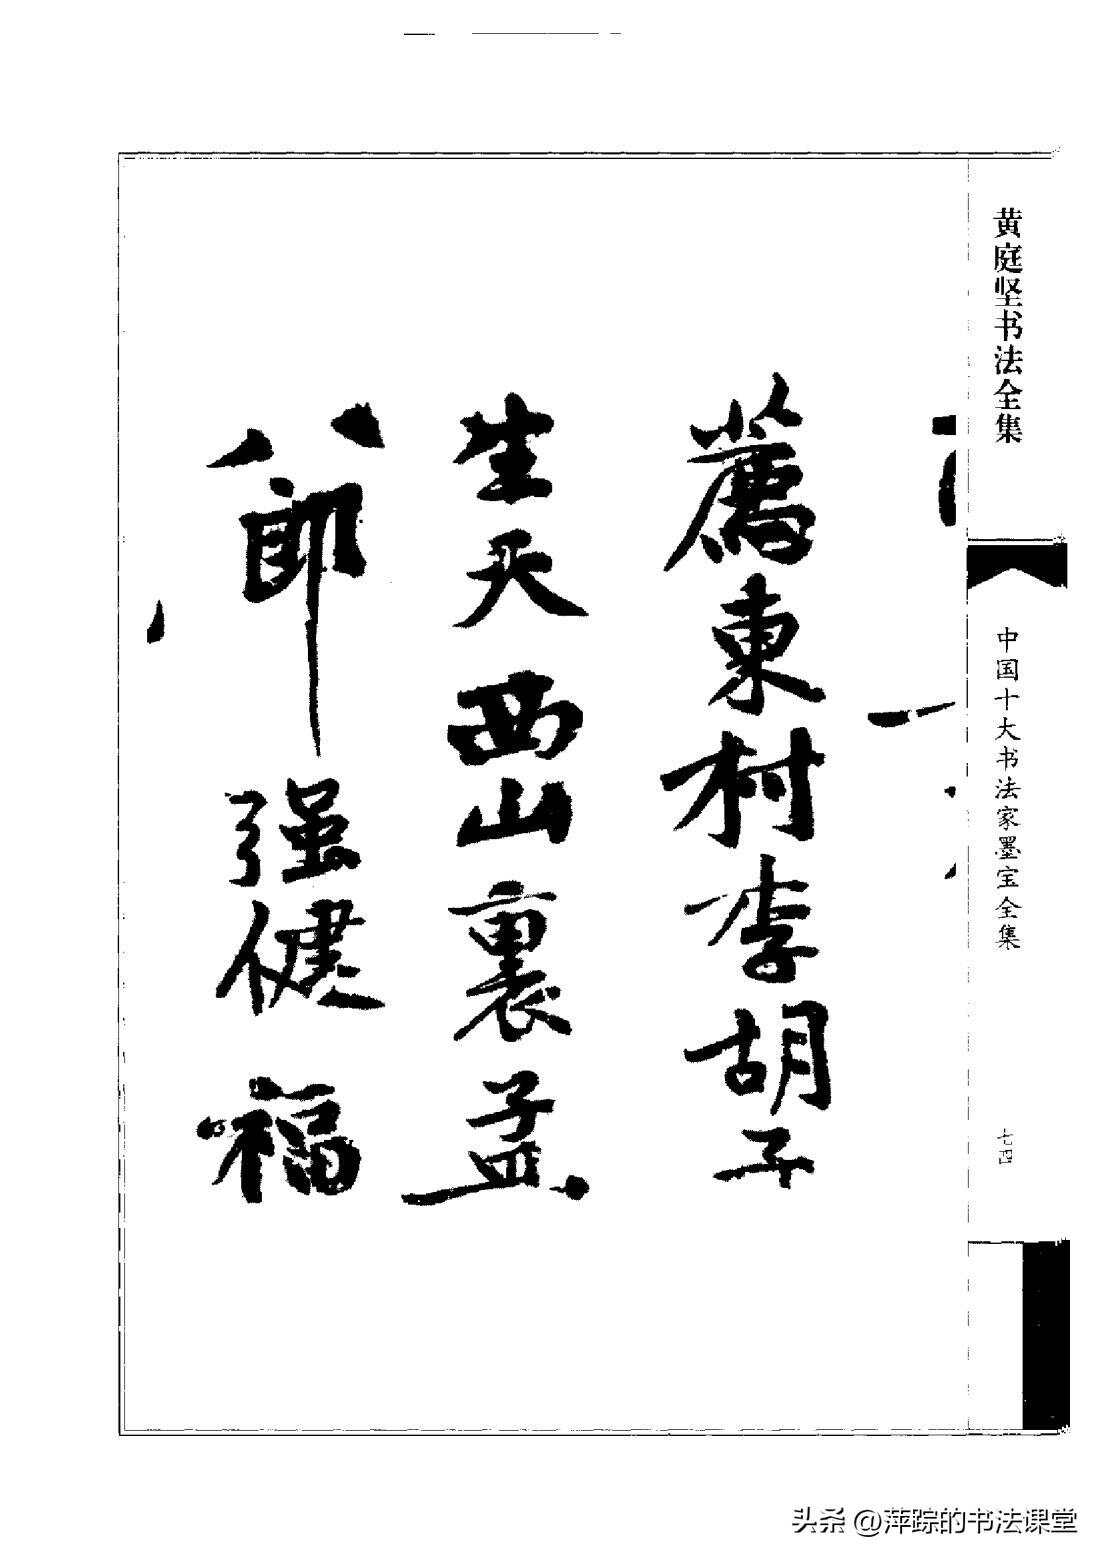 黄庭坚书法全集
中国十大书法家墨宝全集
七四
薦東村李胡子
生天西山裏孟
八郎强健福
头条 @萍踪的书法课堂